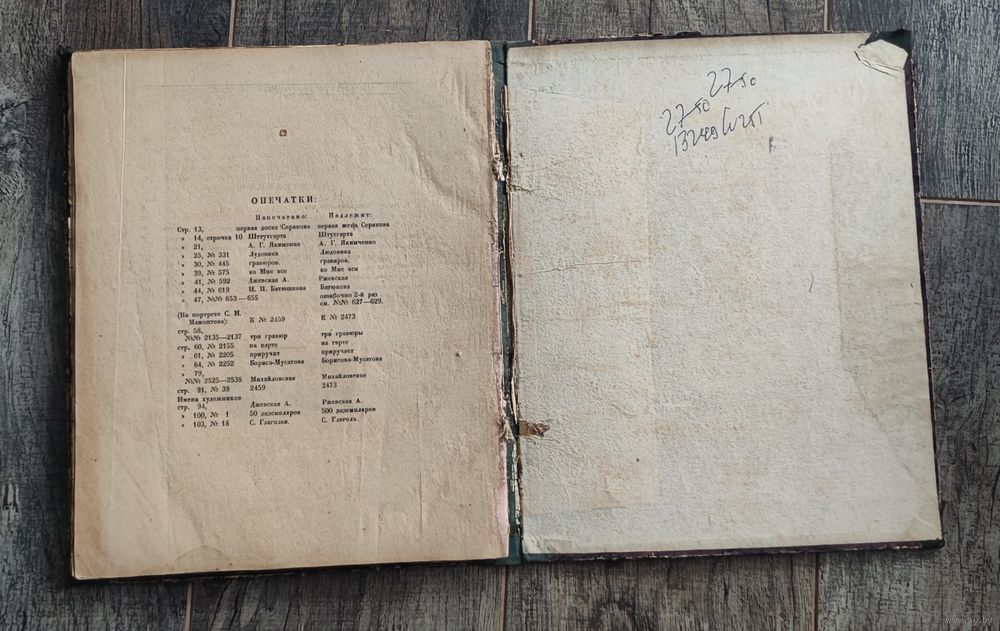 ОПЕЧАТКИ:
Напечатано: Надлежит:
Стр. 13, первая доска Серякова первая жена Серякова
» 14, строчка 10 Штеутгарта Штутгарта
» 21, А. Г. Якименко А. Г. Якимченко
» 25, № 331 Лудовика Людовика
» 30, № 445 гравюров. гравиров.
» 39, № 575 ко Мио вси ко Мне вси
» 41, № 592 Джевская А. Ржевская
» 44, № 619 И. П. Батюшкова Батюкова
» 47, №№ 653—655 ошибочно 2-й раз
см. №№ 627—629.
(На портрете С. И.
Мамонтова): К № 2459 К № 2473
стр. 58,
№№ 2135—2137 три гравюр три гравюры
стр. 60, № 2155 на карте на гарте
» 61, № 2205 приручит приручает
» 64, № 2252 Борисо-Мусатова Борисова-Мусатова
» 79,
№№ 2525—2538 Михайловская Михайловское
стр. 91, № 38 2459 2473
Имена художников
стр. 94, Джевская А. Ржевская А.
» 100, № 1 50 экземпляров 500 экземпляров
» 103, № 18 С. Глаголев. С. Глаголь
27-50 27-50
www.ay.by